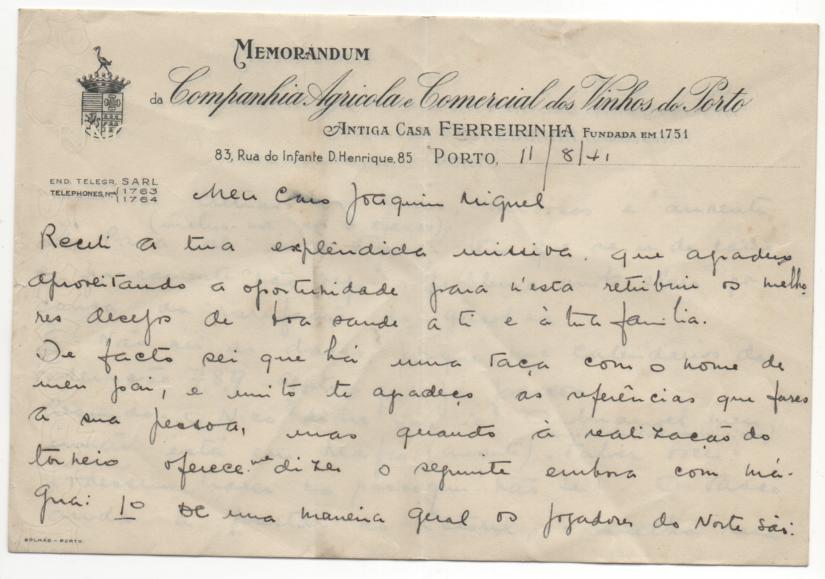 MEMORANDUM
da Companhia Agricola e Comercial dos Vinhos do Porto
ANTIGA CASA FERREIRINHA FUNDADA EM 1751
83, Rua do Infante D. Henrique, 85 PORTO, 11/8/41
END. TELEGR. SARL
TELEPHONES, Nos 1763
1764
Meu Caro Joaquim Miguel
Recebi a tua explêndida missiva, que agradeço
aproveitando a oportunidade para n'esta retribuir os melho-
res desejos de boa saude a ti e à tua familia.
De facto sei que há uma taça com o nome de
meu pai, e muito te agradeço as referências que fazes
à sua pessoa, mas quando à realização do
torneio oferece-me dizer o seguinte embora com má-
gua: 1º De uma maneira geral os jogadores do Norte são:
BOLHÃO - PORTO